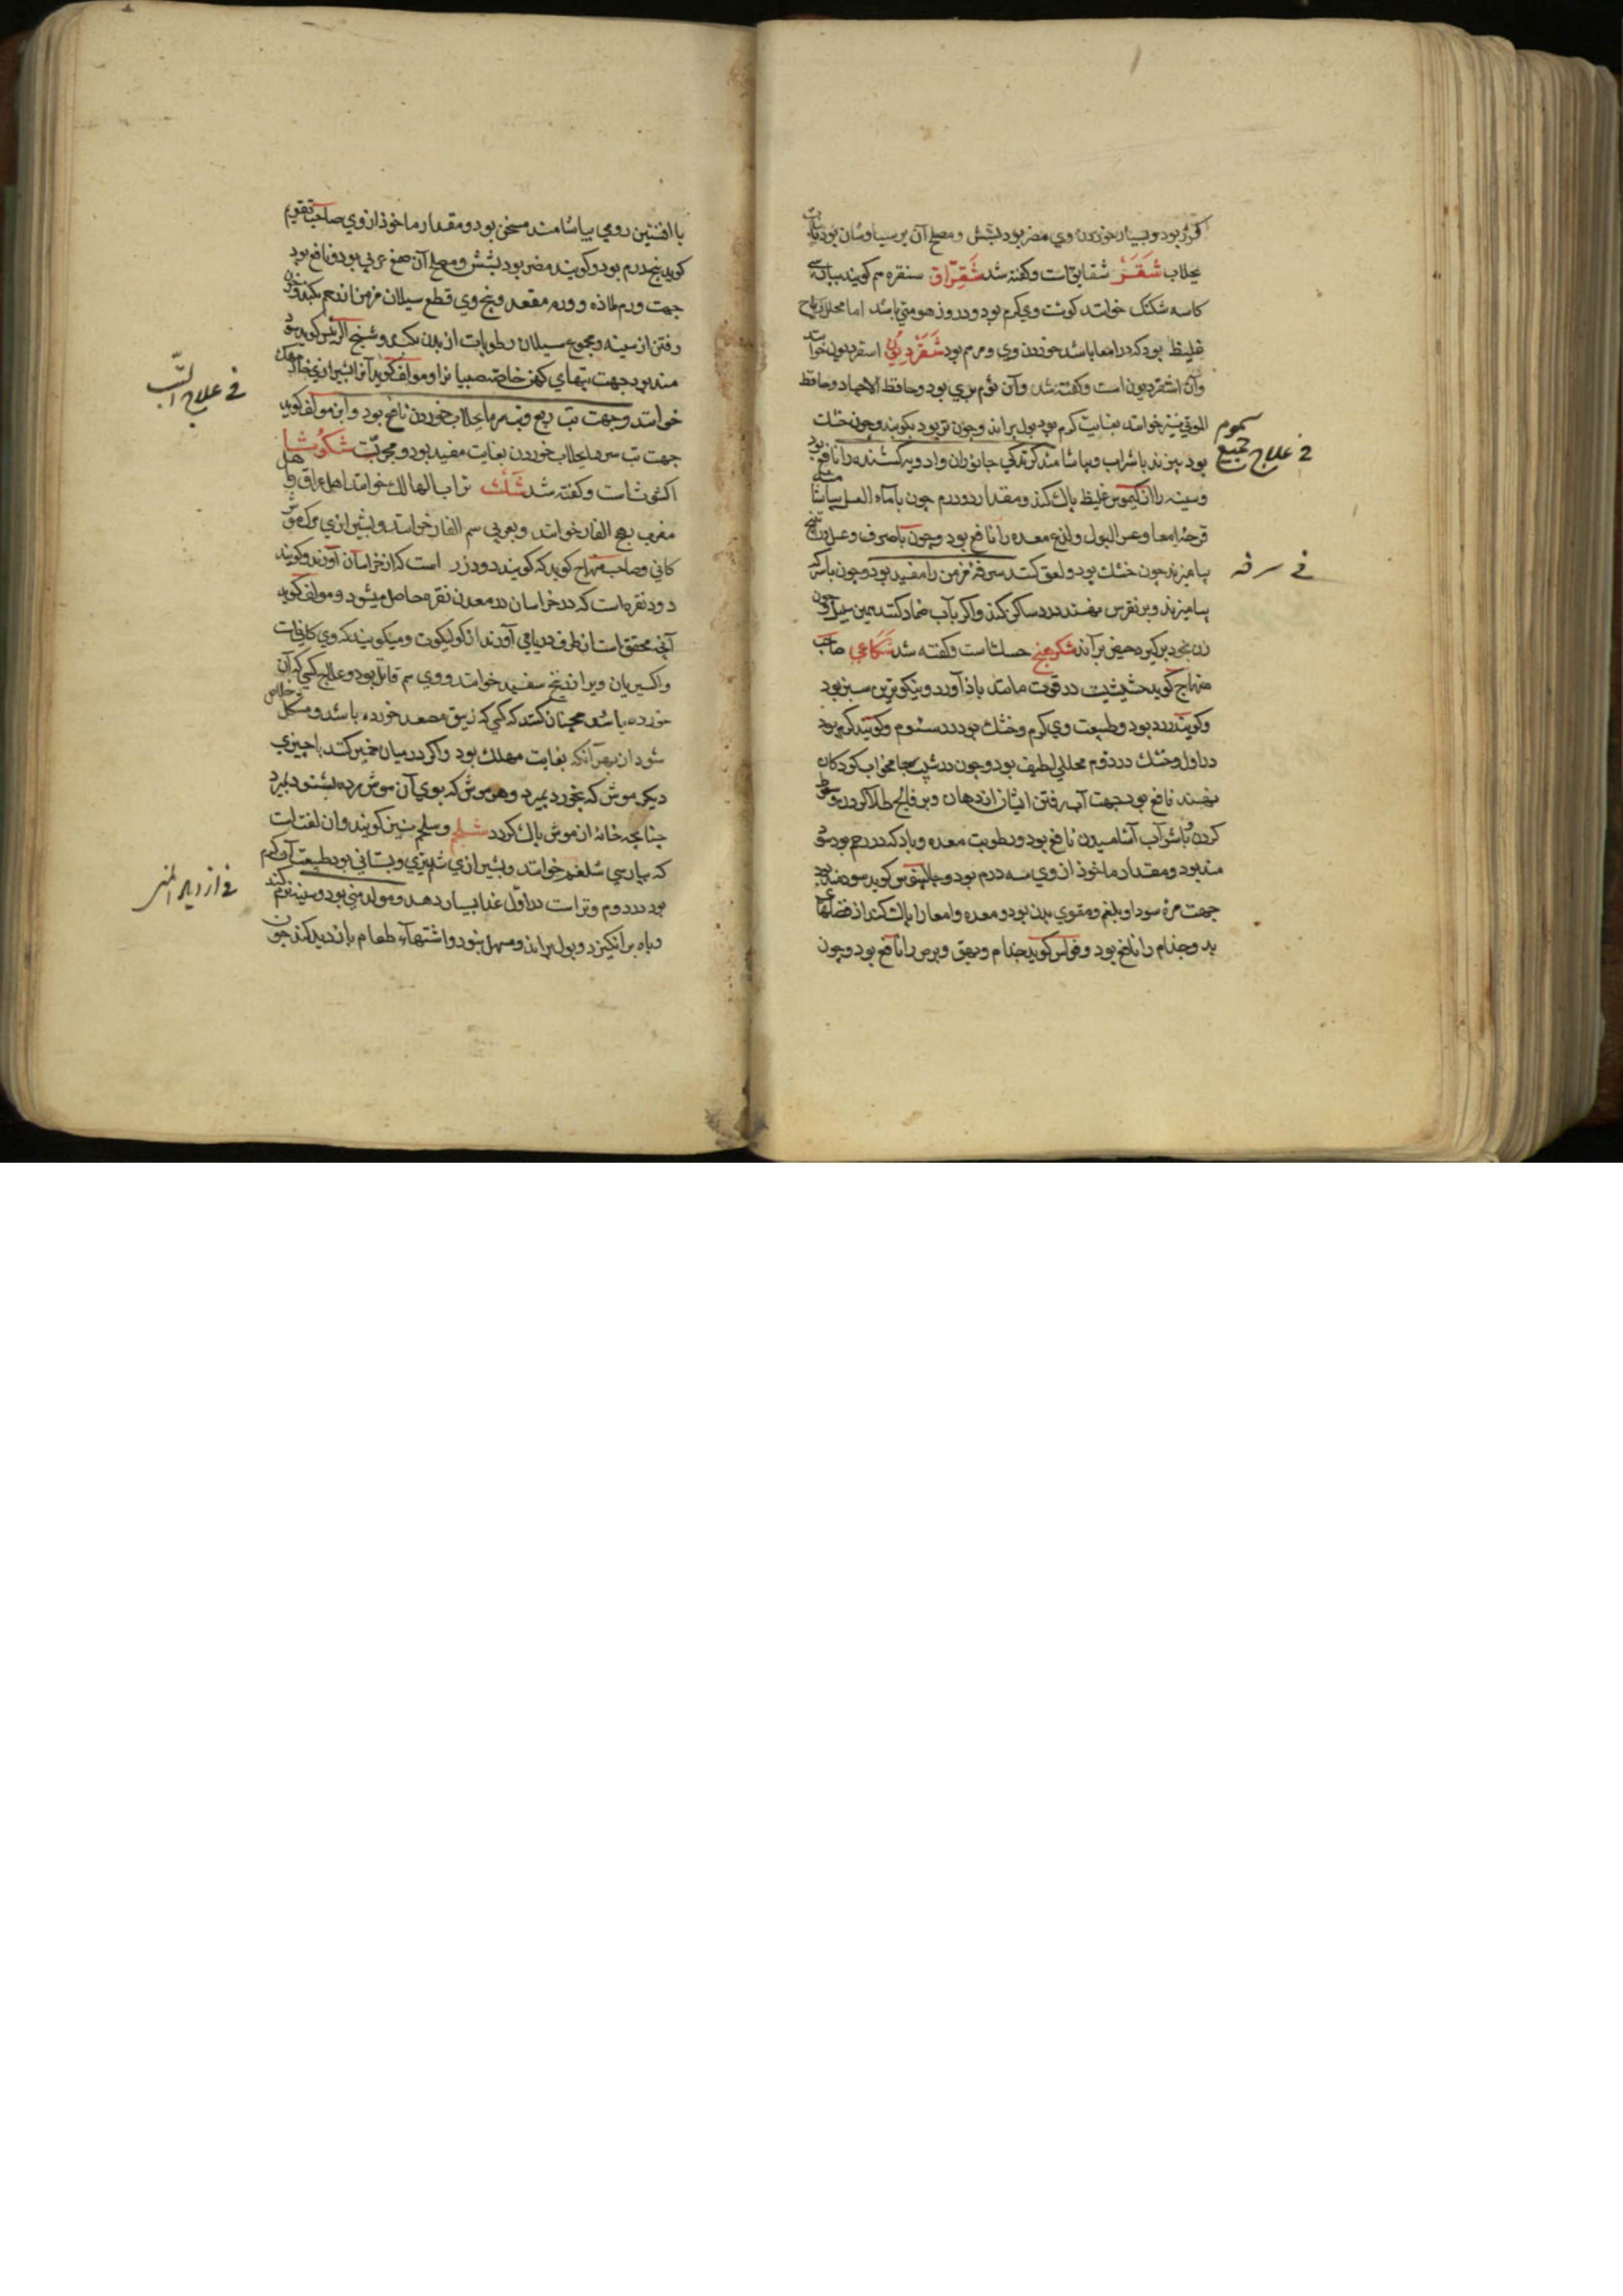 کرده بود و بسیار خوردن وی مضر بود بشش و مصلح آن پرسیاوشان بود با
بجلاب شَقَر شقایق است و گفته شد شَقِرّاق سنقره هم گویند بپارسی
کاسه شکنک خوانند گوشت وی گرم بود و در وی زهومتی باشد اما محلل ریاح
غلیظ بود که در امعا باشد خوردن وی و مرم بود شَقَرْدِیُون اسقردیون خوانند
وآن اشقردیون است و گفته شد وآن ثوم بری بود و حافظ الاجساد و حافظ
الموتی نیز خوانند بغایت گرم بود بول براند و چون تر بود بکوبند و چون خشک
بود بپزند با شراب و بیاشامند گزندگی جانوران و ادویه کشنده را نافع بود
فی علاج جمیع سموم
وسینه را از کیموس غلیظ پاک کند و مقدار دو درم چون با ماء العسل بیاشامند
قرحه امعا و عسر البول و لذع معده را نافع بود و چون با حرف و عسل و راتینج
بیامیزند چون خشک بود و لعق کنند سرفه مزمن را مفید بود و چون با سرکه
فی سرفه
بیامیزند و بر نقرس نهند درد ساکن کند و اگر بآب ضماد کنند همین سبیل و چون
زن بخود برگیرد حیض براند شکرهنج حسک است و گفته شد شُکاعی صاحب
منهاج گوید حشیشیست در قوت مانند باذ آورد و نیکوترین سبز بود
و گویند زرد بود و طبیعت وی گرم و خشک بود در سئوم و گویند گرم بود
در اول و خشک در دوم محللی لطیف بود و چون در شیب جامخواب کودکان
نهند نافع بود جهت آب رفتن ایشان از دهان و بر فالج طلا کردن و سعوط
کردن و با شراب آشامیدن نافع بود و رطوبت معده و باد که در رحم بود سود
مند بود و مقدار ماخوذ از وی سه درم بود و جالینوس گوید سودمند بود
جهت مرة سودا و بلغم و مقوی بدن بود و معده و امعا را پاک کند از فضلهای
بد و جذام را نافع بود و فولس گوید جذام و بهق و برص را نافع بود و چون
با افسنتین رومی بیاشامند مسخن بود و مقدار ماخوذ از وی صاحب تقویم
گوید پنج درم بود و گویند مضر بود بشش و مصلح آن صمغ عربی بود و نافع بود
جهت ورم ملاذه و ورم مقعد و بیخ وی قطع سیلان مزمن از رحم بکند و خون
رفتن از سینه و مجموع سیلان رطوبات از بدن بکند و شیخ الرئیس گوید سود
مند بود جهت تبهای کهن خاصه صبیانرا و مولف گوید آنرا بشیرازی
فی علاج التب
خوانند و جهت تب ربع و تب سرما بجلاب خوردن نافع بود و ابن مولف گوید
جهت تب سرد با جلاب خوردن بغایت مفید بود و مجربست شکوُثا
اکشوثاست و گفته شد شَک تراب الهالک خوانند اهل عراق و اهل
مغرب رهج الفار خوانند و بعربی سم الفار خوانند و بشیرازی مرک موش
کانی و صاحب منهاج گوید که گویند دود زر است که از خراسان آورند و گویند
دود نقره است که در خراسان در معدن نقره حاصل میشود و مولف گوید
آنچه محقق است از طرف دریا می آورند از کولیکوت و میگویند که وی کانی است
واکسیریان ویرا زرنیخ سفید خوانند و وی سم قاتل بود و علاج کسی که آن
خورده باشد همچنان کنند که کسی که زیبق مصعد خورده باشد و مشکل خلاص
شود از بهر آنکه بغایت مهلک بود و اگر در میان خمیر کنند با چیزی
دیگر موش که بخورد بمیرد و هر موش که بوی آن موش مرده بشنود بمیرد
چنانچه خانه از موش پاک گردد شلجم و سلجم نیز گویند و آن لفت است
که بپارسی شلغم خوانند و بشیرازی شلم بری و بستانی بود طبیعت آن گرم
بود در دوم و تر است در اول غذا بسیار دهد و مولد منی بود و سینه نرم کند
و باه برانگیزد و بول براند و مسهل بود و اشتهاء طعام باز دید کند چون